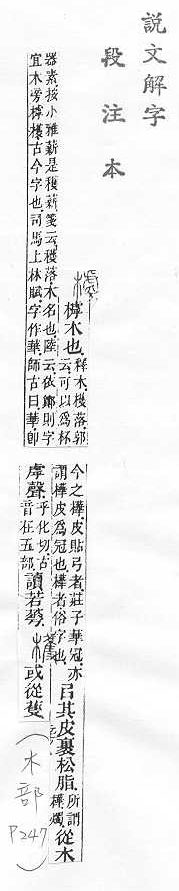 說文解字
段注本
樗木也。釋木。檴落。郭
云。可以爲杯
器素。按小雅薪是穫薪。箋云。穫落木名也。陸云。依鄭則字
宜木旁。樗檴古今字也。司馬上林賦。字作華。師古曰。華卽
今之樺。皮貼弓者。莊子華冠。亦
謂樺皮爲冠也。樺者俗字也。
㠯其皮裹松脂。所謂
樺燭。從木
虖聲。乎化切。古
音在五部。讀若華。
或從蒦
(木部 P247)